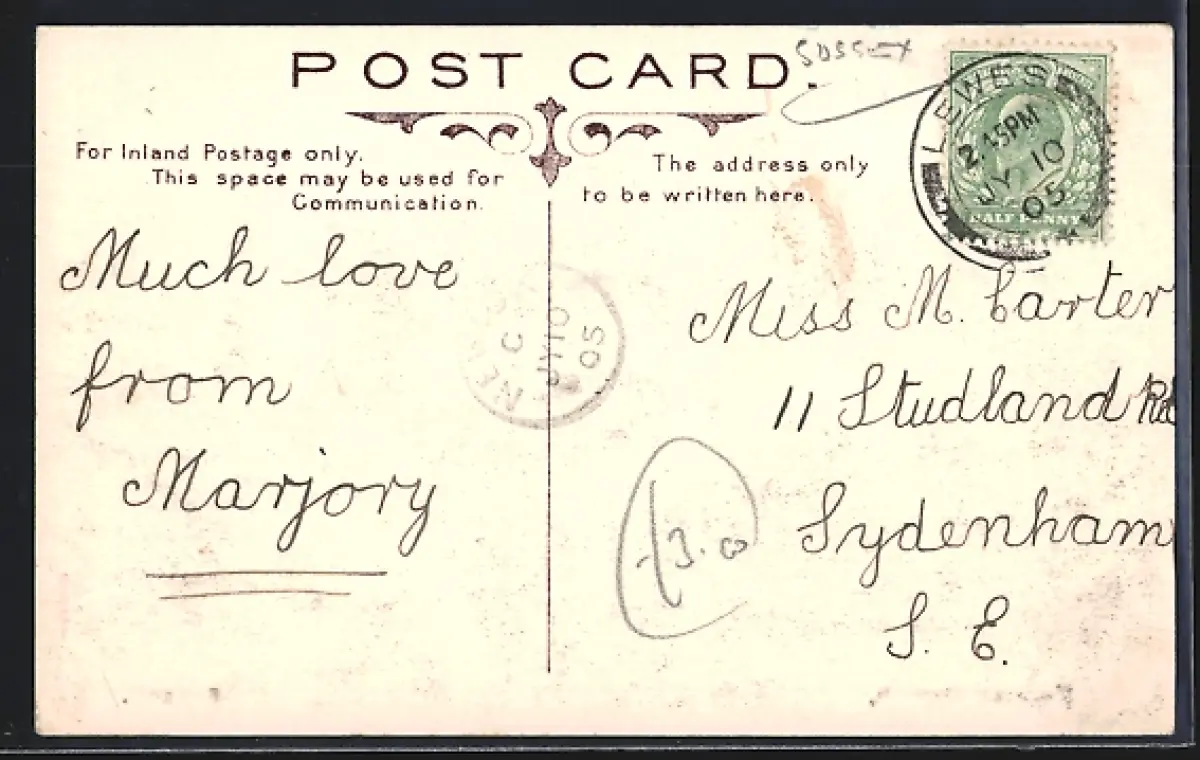 POST CARD.
SUSSEX
For Inland Postage only.
This space may be used for
Communication.
The address only
to be written here.
LEWES
2.15PM
JY 10
05
HALF PENNY
Much love
from
Marjory
JY 10
05
Miss M. Carter
11 Studland Rd
Sydenham
S. E.
£3.00